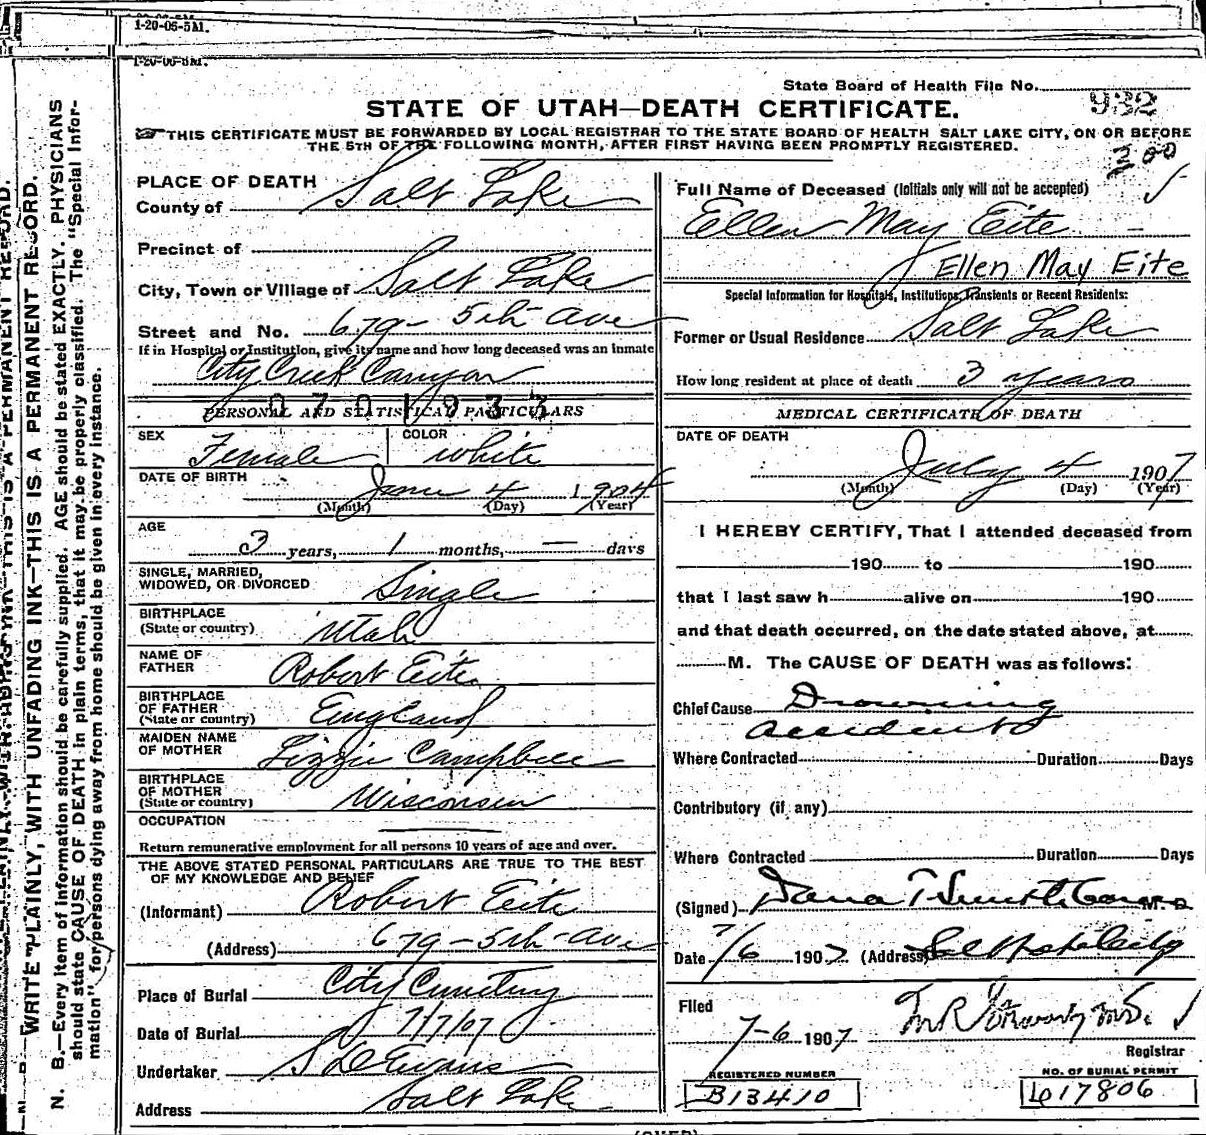 1-20-06-5M.
1-20-06-5M.
State Board of Health File No. 932
STATE OF UTAH—DEATH CERTIFICATE.
THIS CERTIFICATE MUST BE FORWARDED BY LOCAL REGISTRAR TO THE STATE BOARD OF HEALTH SALT LAKE CITY, ON OR BEFORE
THE 5TH OF THE FOLLOWING MONTH, AFTER FIRST HAVING BEEN PROMPTLY REGISTERED.
WRITE PLAINLY, WITH UNFADING INK—THIS IS A PERMANENT RECORD.
N. B.—Every item of information should be carefully supplied. AGE should be stated EXACTLY. PHYSICIANS
should state CAUSE OF DEATH in plain terms, that it may be properly classified. The "Special Infor-
mation" for persons dying away from home should be given in every instance.
PLACE OF DEATH
County of Salt Lake
Precinct of
City, Town or Village of Salt Lake
Street and No. 679 - 5th Ave
If in Hospital or Institution, give its name and how long deceased was an inmate
City Creek Canyon
0701933
PERSONAL AND STATISTICAL PARTICULARS
SEX Female
COLOR White
DATE OF BIRTH June 4 1904
(Month) (Day) (Year)
AGE
3 years, 1 months, — days
SINGLE, MARRIED,
WIDOWED, OR DIVORCED Single
BIRTHPLACE
(State or country) Utah
NAME OF
FATHER Robert Eite
BIRTHPLACE
OF FATHER
(State or country) England
MAIDEN NAME
OF MOTHER Lizzie Campbell
BIRTHPLACE
OF MOTHER
(State or country) Wisconsin
OCCUPATION
Return remunerative employment for all persons 10 years of age and over.
THE ABOVE STATED PERSONAL PARTICULARS ARE TRUE TO THE BEST
OF MY KNOWLEDGE AND BELIEF
(Informant) Robert Eite
(Address) 679 - 5th Ave
Place of Burial City Cemetery
Date of Burial 7/7/07
Undertaker S D Evans
Address Salt Lake
300
Full Name of Deceased (Initials only will not be accepted)
Ellen May Eite
Ellen May Eite
Special Information for Hospitals, Institutions, Transients or Recent Residents:
Former or Usual Residence Salt Lake
How long resident at place of death 3 years
MEDICAL CERTIFICATE OF DEATH
DATE OF DEATH
July 4 1907
(Month) (Day) (Year)
I HEREBY CERTIFY, That I attended deceased from
190 to 190
that I last saw h alive on 190
and that death occurred, on the date stated above, at
M. The CAUSE OF DEATH was as follows:
Chief Cause Drowning
accidental
Where Contracted Duration Days
Contributory (if any)
Where Contracted Duration Days
(Signed) Dana T M.D.
Date 7/6 1907 (Address) Salt Lake City
Filed
7-6 1907 M R
Registrar
REGISTERED NUMBER
B13410
NO. OF BURIAL PERMIT
17806
(OVER)